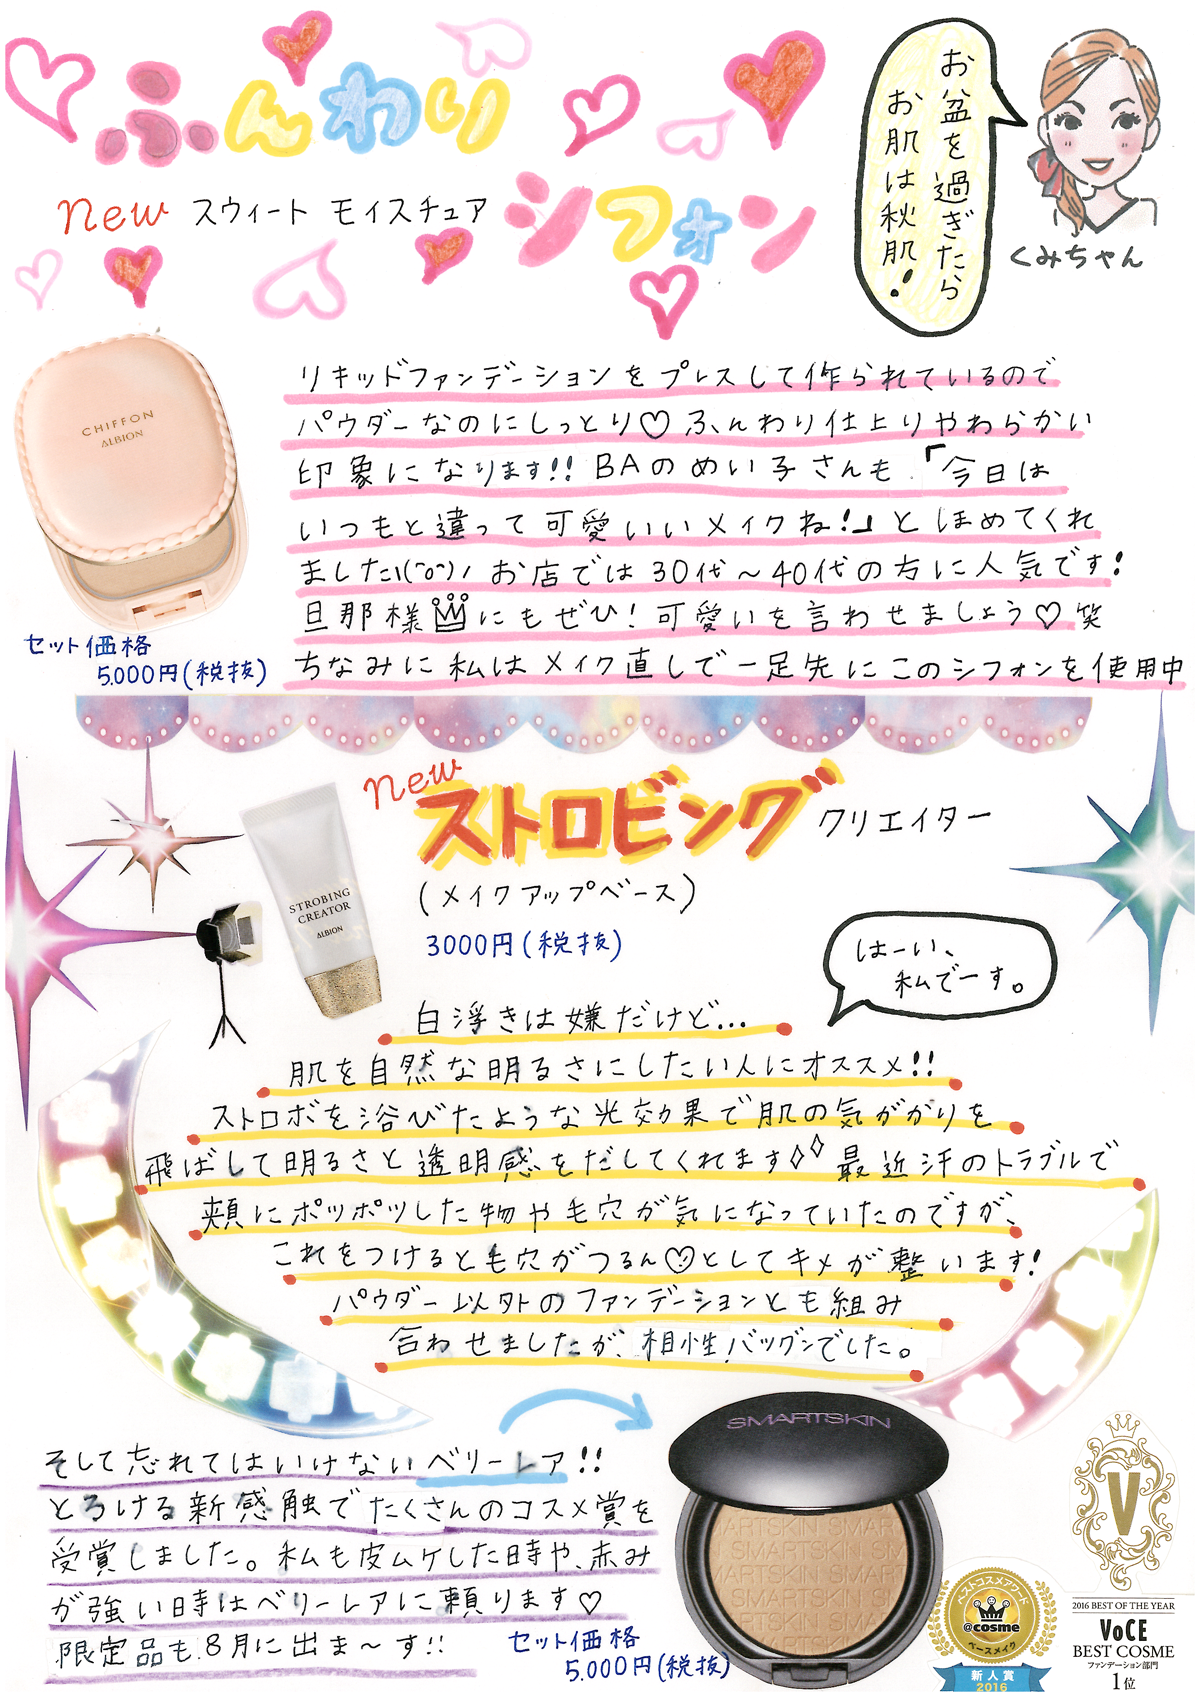 ふんわり
new スウィート モイスチュア
シフォン
お盆を過ぎたら
お肌は秋肌!
くみちゃん
CHIFFON
ALBION
リキッドファンデーションをプレスして作られているので
パウダーなのにしっとり♡ふんわり仕上りやわらかい
印象になります!! BAのめい子さんも「今日は
いつもと違って可愛いいメイクね!」とほめてくれ
ました\(^o^)/ お店では30代〜40代の方に人気です!
旦那様にもぜひ!可愛いを言わせましょう♡笑
ちなみに私はメイク直しで一足先にこのシフォンを使用中
セット価格
5.000円(税抜)
new
ストロビング クリエイター
(メイクアップベース)
3000円(税抜)
STROBING
CREATOR
ALBION
はーい、
私でーす。
白浮きは嫌だけど...
肌を自然な明るさにしたい人にオススメ!!
ストロボを浴びたような光効果で肌の気がかりを
飛ばして明るさと透明感をだしてくれます◇◇ 最近汗のトラブルで
頬にポツポツした物や毛穴が気になっていたのですが、
これをつけると毛穴がつるん♡としてキメが整います!
パウダー以外のファンデーションとも組み
合わせましたが、相性バツグンでした。
そして忘れてはいけないベリーレア!!
とろける新感触でたくさんのコスメ賞を
受賞しました。私も皮ムケした時や、赤み
が強い時はベリーレアに頼ります♡
限定品も8月に出ま〜す!!
セット価格
5.000円(税抜)
SMARTSKIN
ベストコスメアワード
@cosme
ベースメイク
新人賞
2016
V
2016 BEST OF THE YEAR
VOCE
BEST COSME
ファンデーション部門
1位